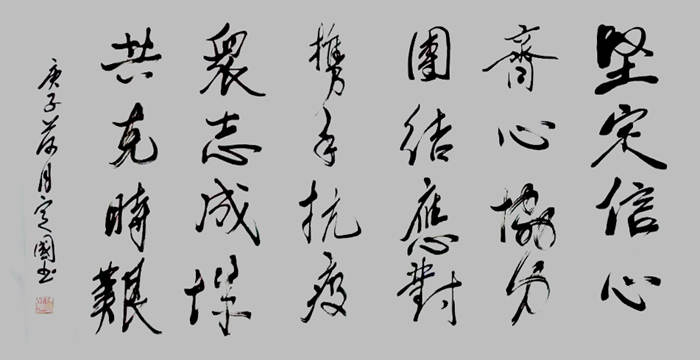 堅定信心
齊心協力
團結應對
攜手抗疫
衆志成城
共克時艱
庚子荷月定國書